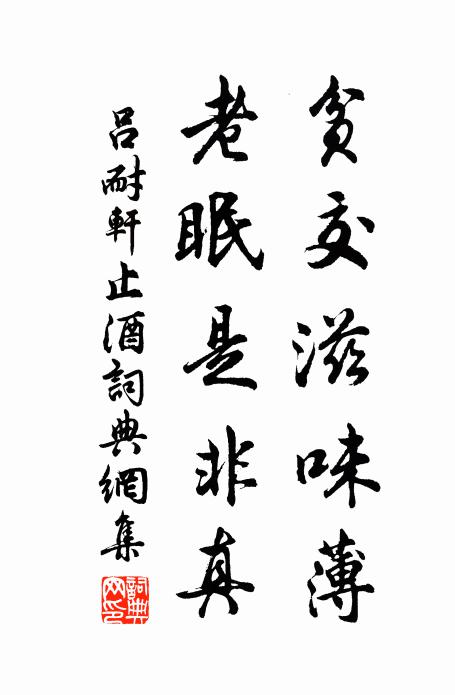 貧交滋味薄
老眠是非真
呂耐軒止酒詞典網集
詞典網印